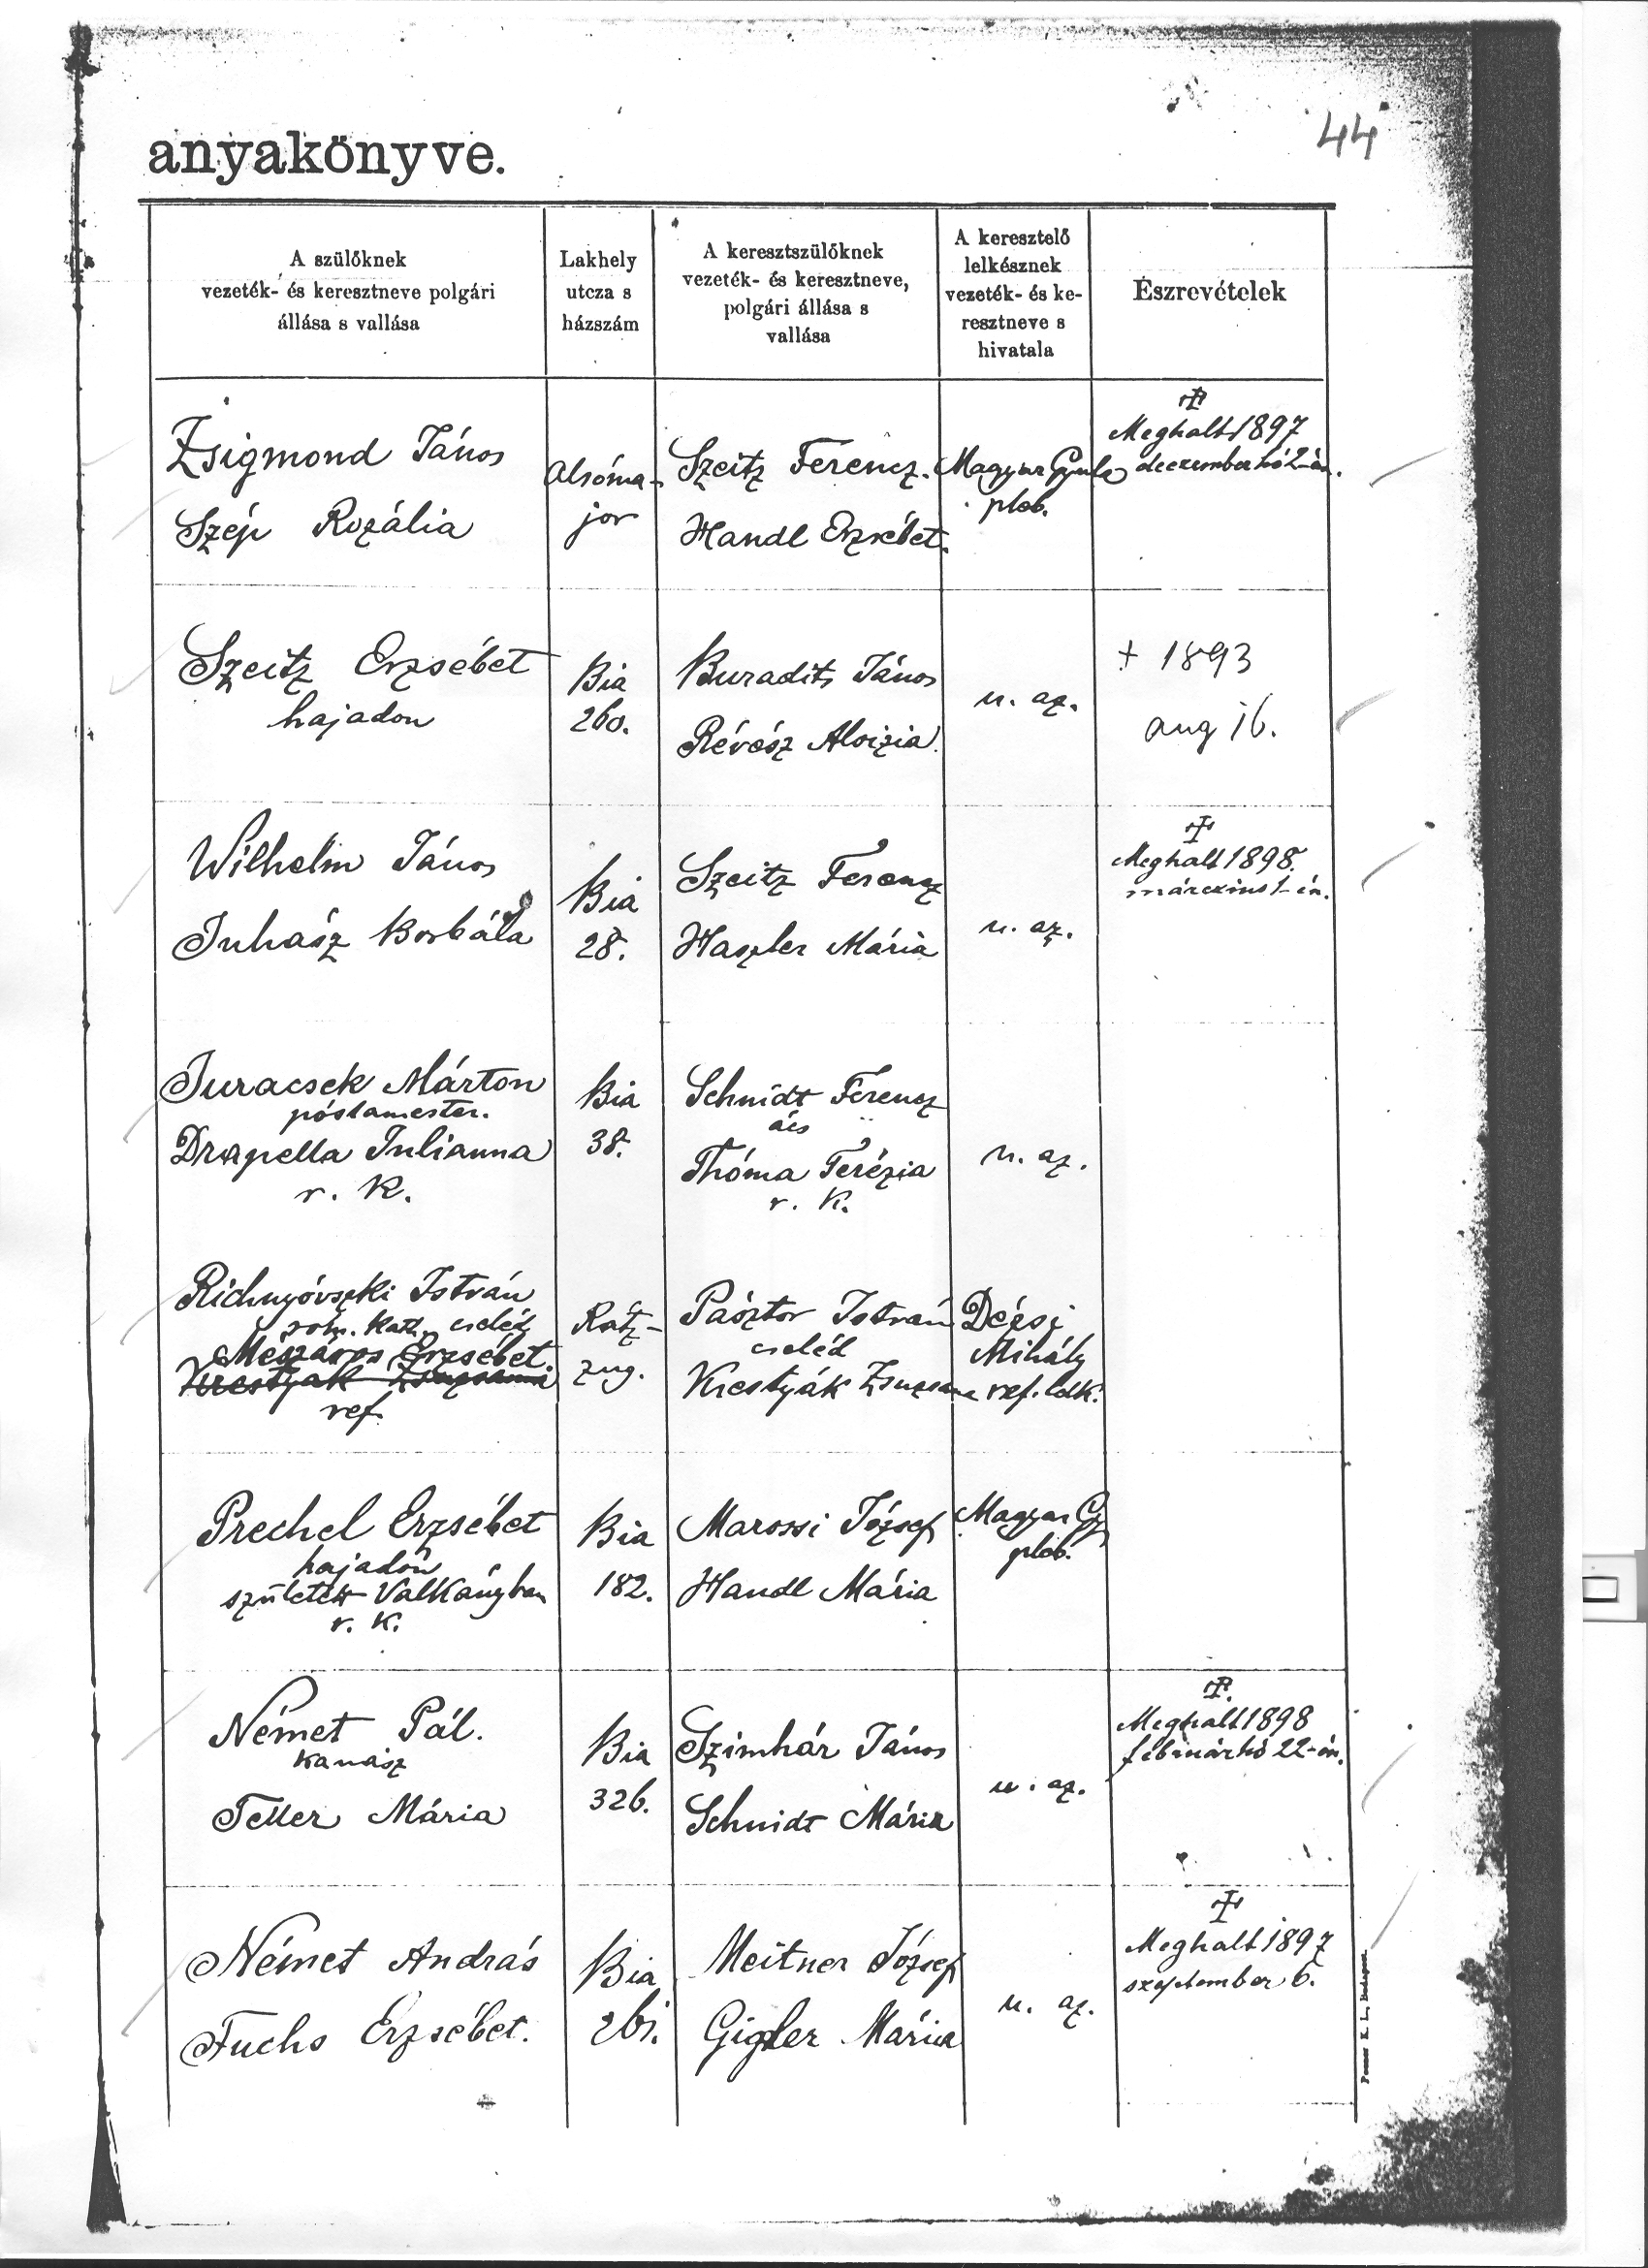 44
anyakönyve.
A szülőknek
vezeték- és keresztneve polgári
állása s vallása
Lakhely
utcza s
házszám
A keresztszülőknek
vezeték- és keresztneve,
polgári állása s
vallása
A keresztelő
lelkésznek
vezeték- és ke-
resztneve s
hivatala
Észrevételek
Zsigmond János
Szép Rozália
Alsóma-
jor
Szeitz Ferencz.
Handl Erzsébet.
Magyar Gyula
pleb.
Meghalt 1897
deczember hó 2-án.
Szeitz Erzsébet
hajadon
Bia
260.
Buradits János
Révész Aloizia
u. az.
+ 1893
aug 16.
Wilhelm János
Juhász Borbála
Bia
28.
Szeitz Ferencz
Haszler Mária
u. az.
Meghalt 1898.
márczius 1-én.
Juracsek Márton
póstamester.
Drapella Julianna
r. k.
Bia
38.
Schmidt Ferencz
ács
Thóma Terézia
r. k.
u. az.
Richnyóvszki István
rom. kath. cseléd
Mészáros Erzsébet.
Krestyák Zsuzsanna
ref.
Rátz-
zug.
Pásztor István
cseléd
Krestyák Zsuzsana
Dézsi
Mihály
ref. ldk.
Prechel Erzsébet
hajadon
született Valkányban
r. k.
Bia
182.
Marossi József
Handl Mária
Magyar Gy
pleb.
Német Pál.
kanász
Teller Mária
Bia
326.
Szimhár János
Schmidt Mária
u. az.
Meghalt 1898
februárhó 22-én.
Német András
Fuchs Erzsébet.
Bia
261.
Meitner József
Gigler Mária
u. az.
Meghalt 1897
szeptember 6.